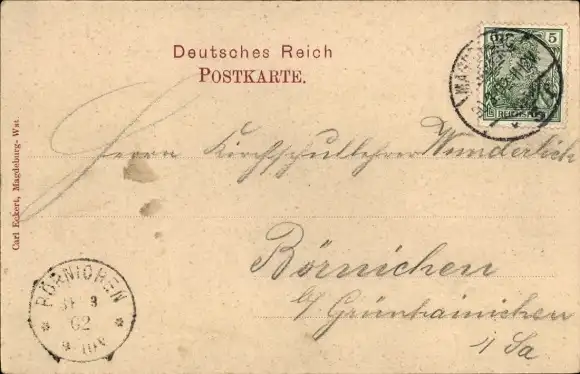 Deutsches Reich
POSTKARTE.
5
REICHSPOST
Herrn Kirchschullehrer Wunderlich
Börnichen
b/ Grünhainichen
i/Sa
Carl Eckert, Magdeburg-Wst
BÖRNICHEN
02